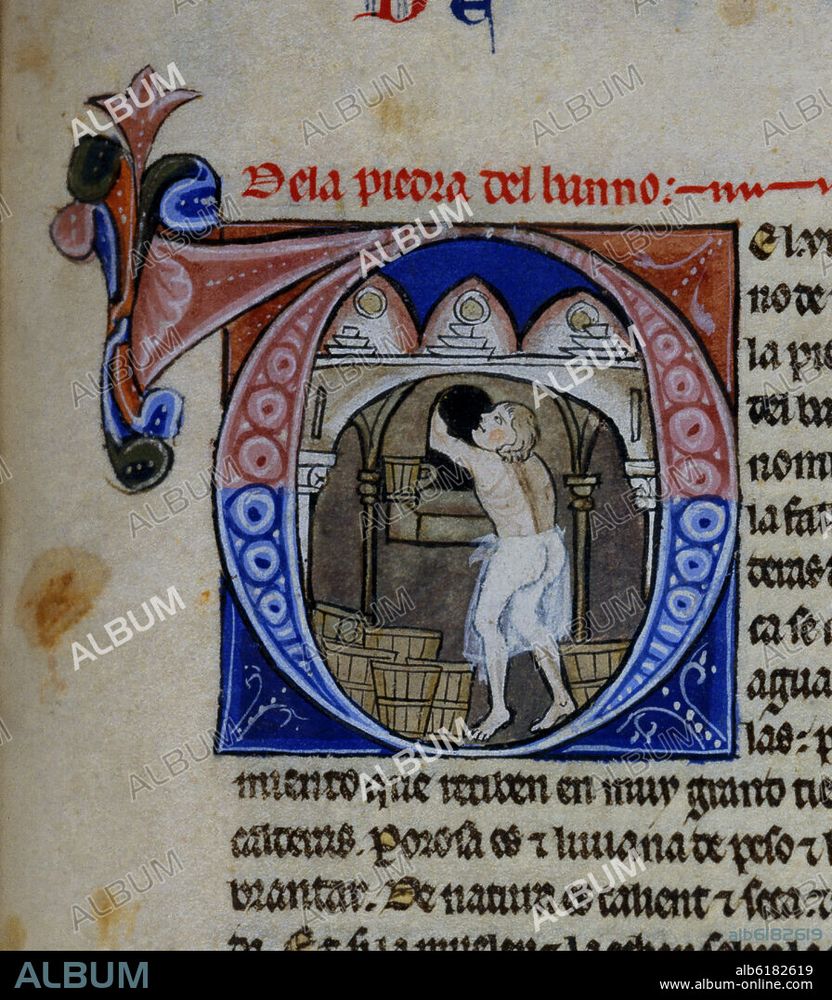 De
Dela piedra del banno:
El
no de
la pie
del ba
nomb
la fa
teras
ca se
agua
las: p
miento que reciben en muy grand tie
calderas. Porosa es & liuiana de peso &
brantar. De natura es calient & seca.
ALBUM
alb6182619
ALBUM
alb6182619
www.album-online.com